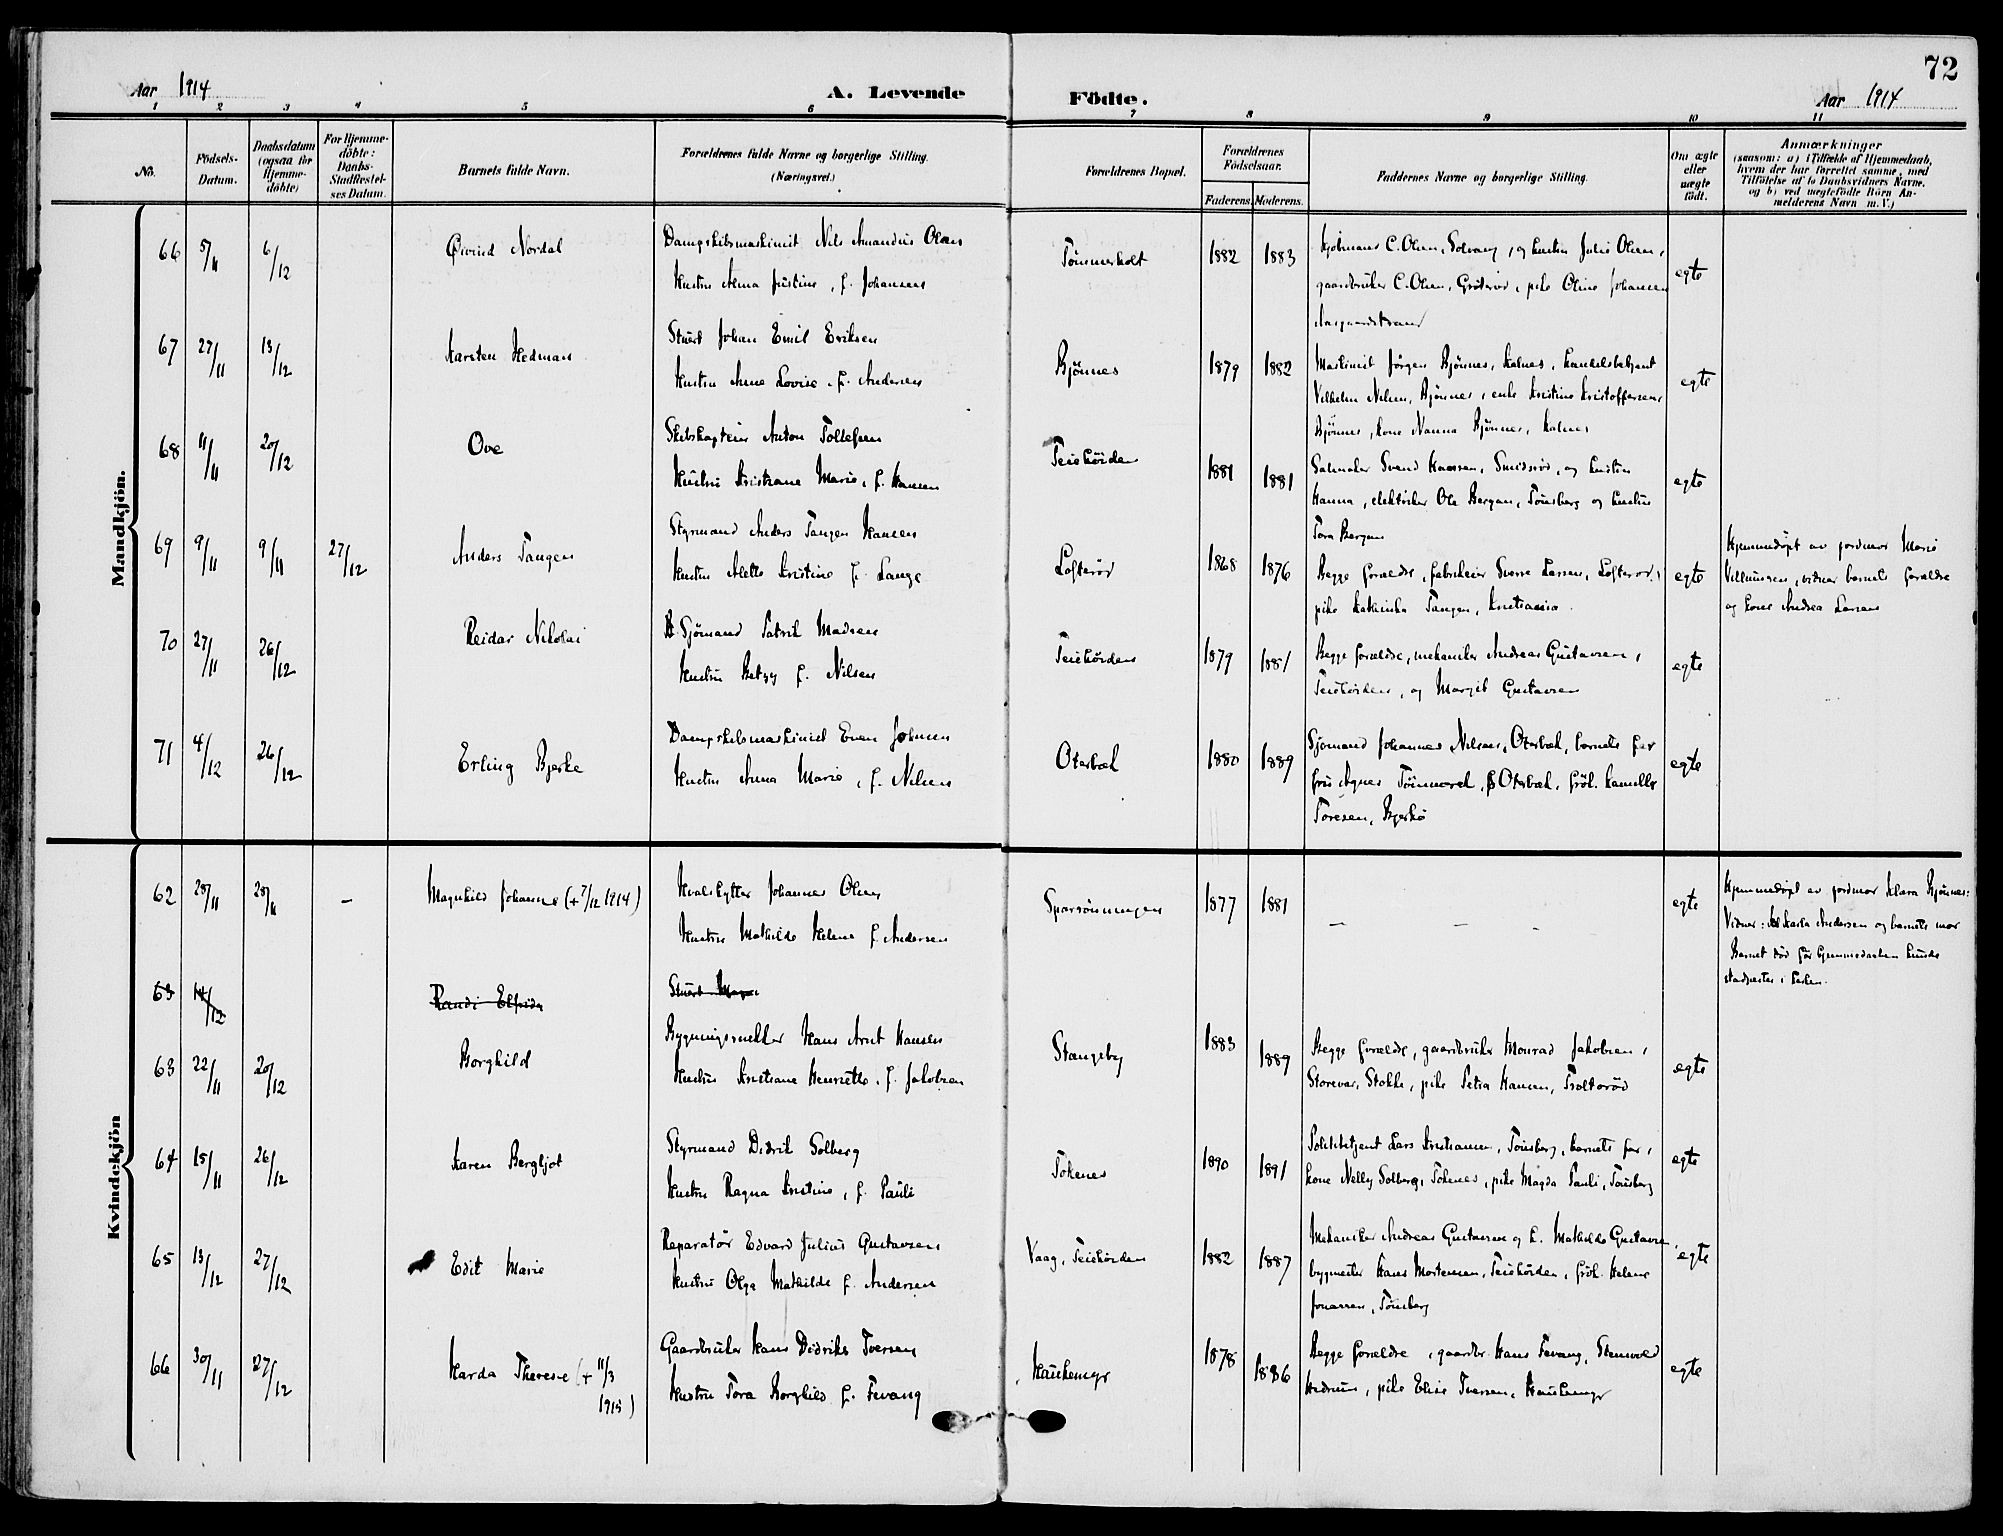 72
Aar 1914
A. Levende
Födte.
Aar 1914
1 2 3 4 5 6 7 8 9 10 11
No.
Födsels-
Datum.
Daabsdatum
(ogsaa for
Hjemme-
döbte)
For Hjemme-
döbte:
Daabs-
Stadfæstel-
ses Datum.
Barnets fulde Navn.
Forældrenes fulde Navne og borgerlige Stilling.
(Næringsvei.)
Forældrenes Bopæl.
Forældrenes
Födselsaar.
Faderens. Moderens.
Faddernes Navne og borgerlige Stilling.
Om ægte
eller
uægte
födt.
Anmærkninger
(saasom: a) i Tilfælde af Hjemmedaab,
hvem der har forrettet samme, med
Tilföielse af to Daabsvidners Navne.
og b) ved uægtefödte Börn An-
melderens Navn m. V.)
Mandkjön.
66 5/11 6/12 Øivind Nordal
Dampskibsmaskinist Nils Amandus Olsen
Hustru Alma Justine, f. Johansen
Tömmerholt 1882 1883
C. Olsen, Solvang, og hustru Julie Olsen,
gaardbruker C. Olsen, pike Oline Johansen
Aasgaardstrand
egte
67 27/11 13/12 Karsten Hedman
Stuert Johan Emil Eriksen
Hustru Anne Lovise, f. Andersen
Bjönnes 1879 1882
Maskinist Jörgen Bjönnes, Kalnes, handelsbetjent
Vilhelm Nilsen, Bjönnes, enke Kristine Kristoffersen,
Bjönnes, kone Nanna Bjönnes, Kalnes
egte
68 11/11 20/12 Ove
Skibskaptein Anton Tollefsen
Hustru Kristiane Marie, f. Hansen
Teiehöiden 1881 1881
Salmaker Svend Hansen, Smidsröd, og hustru
Hanna, elektriker Ole Bergan, Tönsberg og hustru
Tora Bergan
egte
69 9/11 9/11 27/12 Anders Tangen
Styrmand Anders Tangen Hansen
Hustru Alette Kristine f. Lange
Lofteröd 1868 1876
Begge forældre, fabrikeier Sverre Larsen, Lofteröd,
pike Kathinka Tangen, Kristiania.
egte
Hjemmedöpt av jordmor Marie
Vellungen, vidner barnets forældre
og kone Andrea Larsen
70 27/11 26/12 Reidar Nikolai
Sjömand Patrik Madsen
Hustru Betzy f. Nilsen
Teiehöiden 1879 1881
Begge forældre, mekaniker Andreas Gustavsen,
Teiehöiden, og Margit Gustavsen
egte
71 4/12 26/12 Erling Bjerke
Dampskibsmaskinist Even Johnsen
Hustru Anna Marie, f. Nilsen
Oterbæk 1880 1889
Sjömand Johannes Nilsen, Oterbæk, barnets far
fru Agnes Oterbæk, fröl. Kamilla
Toresen, Bjerkö
egte
Kvindekjön
62 28/11 28/11 — Magnhild Johanne (+ 7/12 1914)
Hvalskytter Johannes Olsen
Hustru Mathilde Helene f. Andersen
1877 1881
— — -
egte
Hjemmedöpt av jordmor Klara Bjönnes:
Vidner: Karla Andersen og barnets mor
Barnet död för hjemmedaaben kunde
stadfæstes i kirken.
63 14/12 Randi Elfrida
Stuert
63 22/11 20/12 Borghild
Bygningssnekker Hans Arnt Hansen
Hustru Kristiane Henriette, f. Jakobsen
Stangeby 1883 1889
Begge forældre, gaardbruker Monrad Jakobsen,
Storevar, Stokke, pike Petra Hansen,
egte
64 15/11 26/12 Karen Bergljot
Styrmand Didrik Solberg
Hustru Ragna Kristine, f. Pauli
Tokenes 1890 1891
Politibetjent Lars Kristiansen, Tönsberg, barnets far,
kone Nelly Solberg, Tokenes, pike Magda Pauli, Tönsberg
egte
65 13/12 27/12 Edit Marie
Reparatör Edvard Julius Gustavsen
Hustru Olga Mathilde f. Andersen
Vaag, Teiehöiden 1882 1887
Mekaniker Andreas Gustavsen og h. Mathilde Gustavsen,
bygmester Hans Mortensen, Teiehöiden, fröl. Helene
Jonassen, Tönsberg
egte
66 30/11 27/12 Harda Therese (+ 11/3
1915)
Gaardbruker Hans Didriks Iversen
Hustru Tora Borghild f. Fevang
Haukemyr 1878 1886
Begge forældre, gaardbr. Hans Fevang,
Hedrum, pike Elise Iversen, Haukemyr
egte